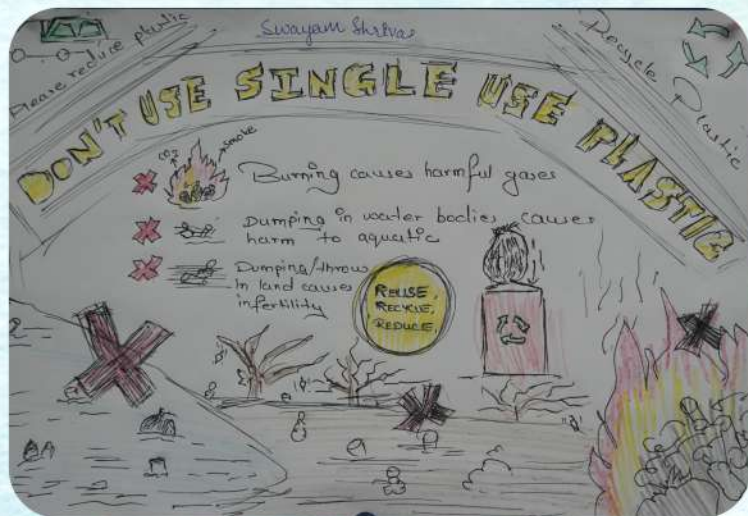 Swayam Shrivas
Please reduce plastic
Recycle Plastic
DON'T USE SINGLE USE PLASTIC
CO2 smoke
Burning causes harmful gases
Dumping in water bodies causes
harm to aquatic
Dumping/throw
In land causes
infertility
REUSE,
RECYCLE,
REDUCE,